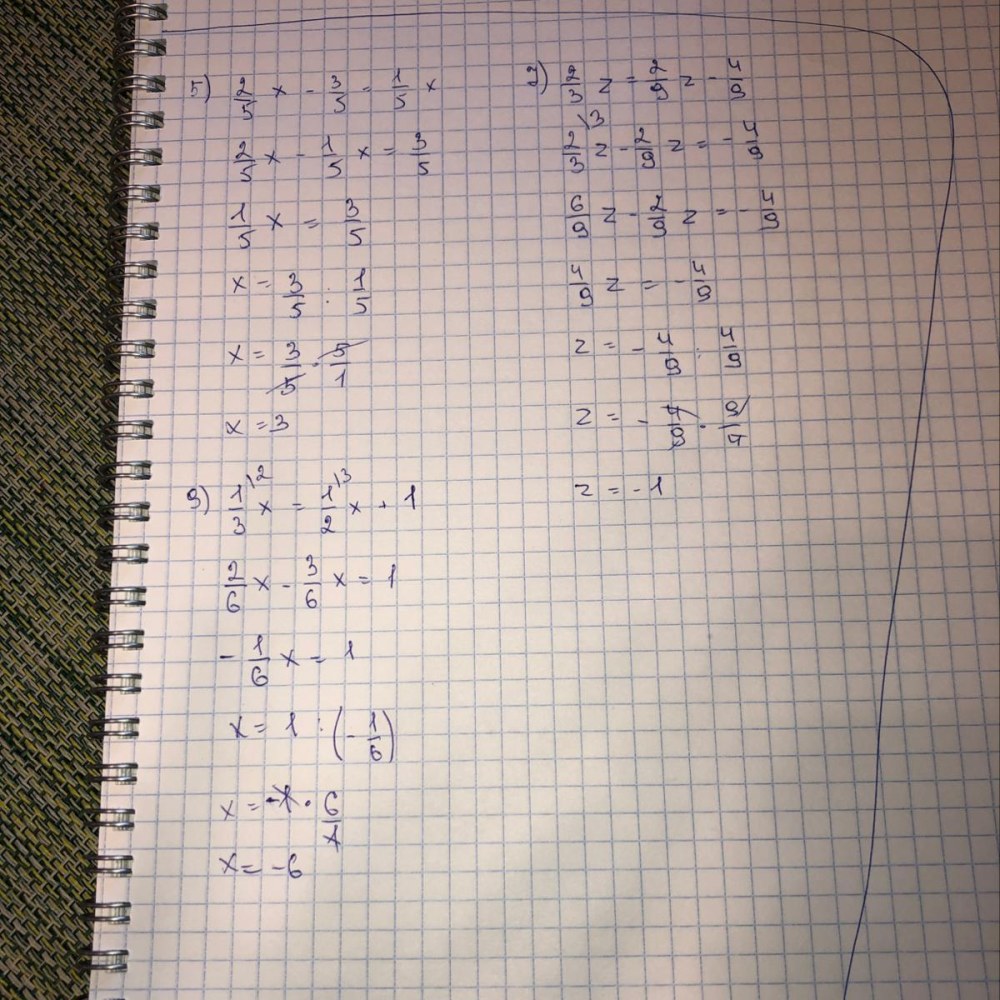 5) 2/5 x - 3/5 = 1/5 x
2/5 x - 1/5 x = 3/5
1/5 x = 3/5
x = 3/5 : 1/5
x = 3/5 · 5/1
x = 3
9) 1/3\2 x = 1/2\3 x + 1
2/6 x - 3/6 x = 1
- 1/6 x = 1
x = 1 : (- 1/6)
x = -1 · 6/1
x = -6
2/3 z = 2/9 z - 4/9
2/3\3 z - 2/9 z = - 4/9
6/9 z - 2/9 z = - 4/9
4/9 z = - 4/9
z = - 4/9 : 4/9
z = - 4/9 · 9/4
z = -1